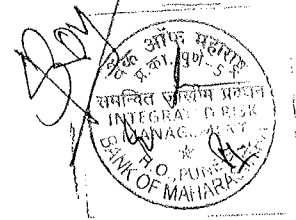 बैंक ऑफ महाराष्ट्र
प्र.का. पुणे-5
समन्वित जोखीम प्रबंधन
INTEGRATED RISK
MANAGEMENT
H.O., PUNE
BANK OF MAHARASHTRA